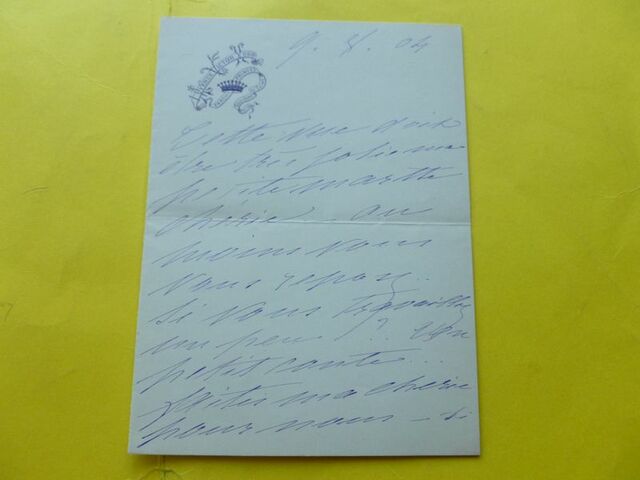 9. 8. 04
Cette vue doit
être très jolie ma
petite marthe
chérie, au
moins vous
vous repos..
Si vous travaillez
un peu ? Un
petit conte..
faites ma chérie
pour nous - si